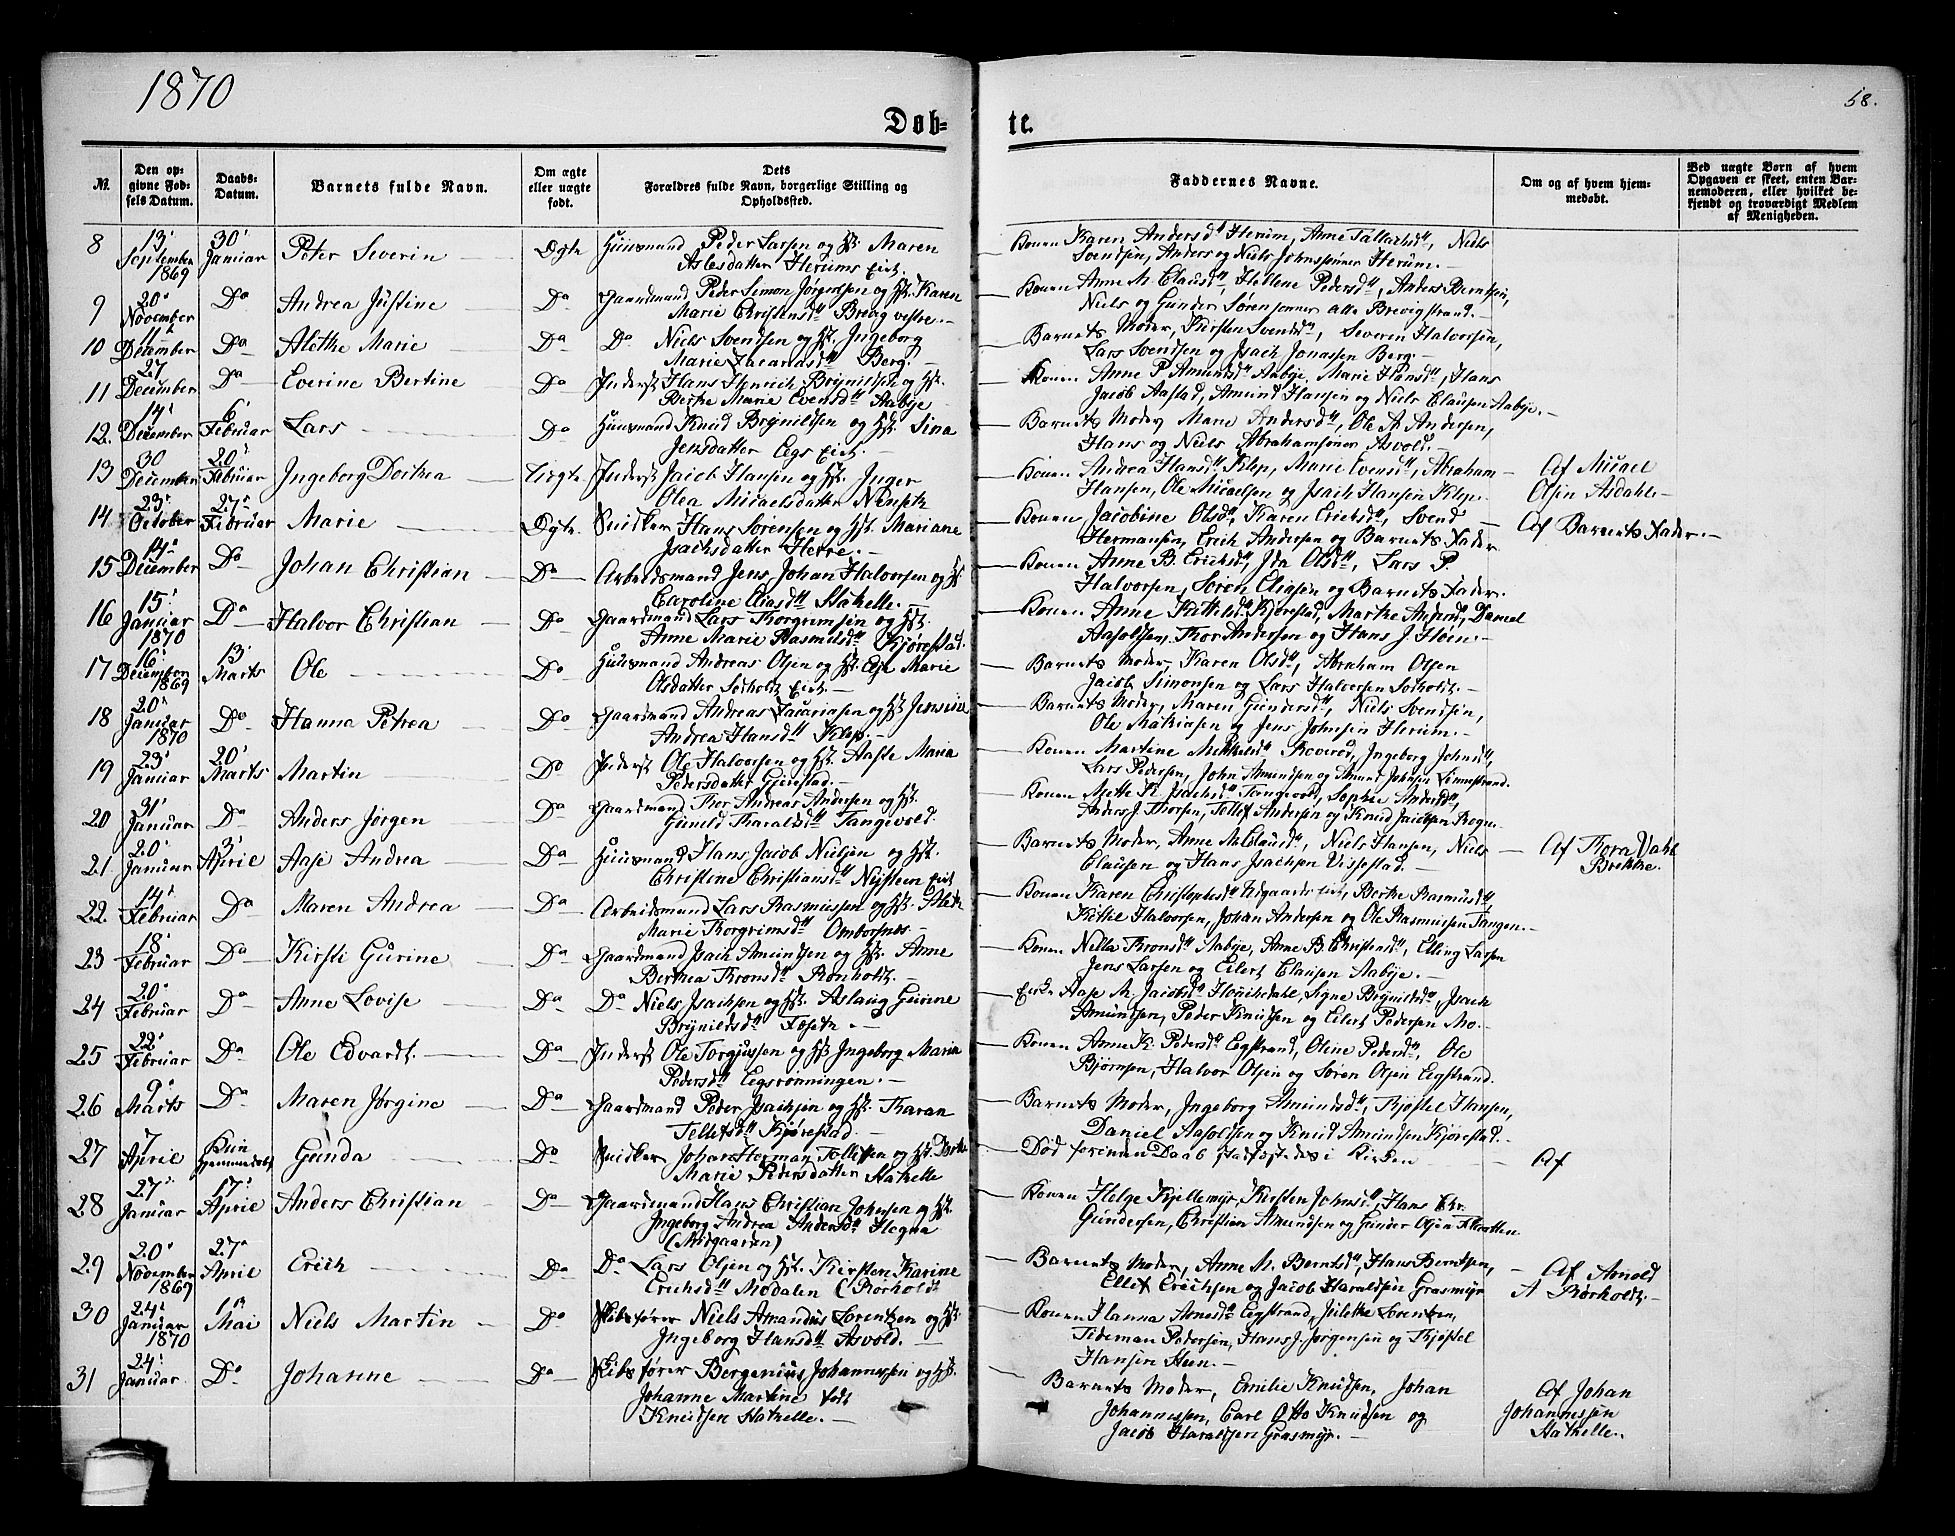 1870
58.
Døb-
te.
№
Den op-
givne Fød-
sels Datum.
Daabs-
Datum.
Barnets fulde Navn.
Om ægte
eller uægte
født.
Dets
Forældres fulde Navn, borgerlige Stilling og
Opholdssted.
Faddernes Navne.
Om og af hvem hjem-
medøbt.
Ved uægte Børn af hvem
Opgaven er skeet, enten Bar-
nemoderen, eller hvilket be-
kjendt og troværdigt Medlem
af Menigheden.
8 13' September 1869 30' Januar Peter Severin Ægte Huusmand Peder Larsen og Hst. Maren
Aslesdatter Herums Eiet.
Konen Karen Andersdtr Herum, Anne Tallachsdtr, Niels
Svendsen, Anders og Niels Johnssønner Herum.
9 20' November Do Andrea Justine Do Gaardmand Peder Simon Jørgensen og Hst. Karen
Marie Christensdtr Brevig vestre.
Konen Anne M. Clausdtr, Hellene Pedersdtr, Anders Berntsen,
Niels og Gunder Sørensønner alle Brevigstrand.
10 11' December Do Alethe Marie Do Do Niels Svendsen og Hst. Ingeborg
Marie Zacariasdtr Berg.
Barnets Moder, Kirsten Svendsdtr, Severin Halvorsen,
Lars Svendsen og Isach Jonassen Berg.
11 27 December Do Everine Bertine Do Inderst Hans Henrich Brynildsen og Hst.
Berthe Marie Evensdtr Aabye
Konen Anne P. Amundsdtr Aabye, Marie Hansdtr, Hans
Jacob Aastad, Amund Hansen og Niels Clausen Aabye.
12. 14' December 6' Februar Lars Do Huusmand Knud Brynildsen og Hst. Sina
Jensdatter Eegs Eiet.
Barnets Moder Maren Andersdtr, Ole A. Andersen,
Hans og Niels Abrahamsønner Asvold.
13 30 December 20' Februar Ingeborg Dorthea Uægte Inderst Jacob Hansen og Hst. Inger
Olea Micaelsdatter Nenseth
Konen Andrea Hansdtr Klep, Marie Evensdtr, Abraham
Hansen, Ole Micaelsen og Isach Hansen Klep.
Af Micael
Olsen Asdahl
14 23' October 27' Februar Marie Ægte Snidker Hans Sørensen og Hst. Mariane
Isachsdatter Herre.
Konen Jacobine Olsdtr, Karen Erichsdtr, Svend
Hermansen, Erich Andersen og Barnets Fader
Af Barnets Fader.
15 14' December Do Johan Christian Do Arbeidsmand Jens Johan Halvorsen og Hst
Caroline Eliasdtr Stathelle.
Konen Anne B. Erichsdtr, Ida Olsdtr, Lars P.
Halvorsen, Søren Eliasen og Barnets Fader.
16 15' Januar 1870 Do Halvor Christian Do Gaardmand Lars Thorgrimsen og Hst.
Anne Marie Rasmusdtr Kjørestad.
Konen Anne Kittilsdtr Kjørestad, Marthe Daniel
Aasoldsen, Thor Andersen og Hans J. Høen.
17 16' December 1869 13' Marts Ole Do Huusmand Andreas Olsen og Hst. Else Marie
Olsdatter Solholdt Eiet.
Barnets Moder, Karen Olsdtr, Abraham Olsen
Jacob Simonsen og Lars Halvorsen Solholdt.
18 20' Januar 1870 Do Hanna Petrea Do Gaardmand Andreas Zacariasen og Hst Jensine
Andrea Hansdtr Klep.
Barnets Moder, Maren Gundersdtr, Niels Svendsen,
Ole Mathiasen og Jens Johnsen Herum.
19 23' Januar 20' Marts Martin Do Inderst Ole Halvorsen og Hst. Aaste Maria
Pedersdatter Gjenstad.
Konen Martine Mikkelsdtr Roverød, Ingeborg Johnsdtr,
Lars Pedersen, John Amundsen og Amund Johnsen Linnestrand.
20 31' Januar Do Anders Jørgen Do Gaardmand Thor Andreas Andersen og Hst.
Gunild Haraldsdtr Tangevold.
Konen Mette K. Isachsdtr Tangevold, Sophie Andersdtr,
Anders J. Thorsen, Tellef Andersen og Knud Jacobsen Rogn.
21 20' Januar 3' April Aase Andrea Do Huusmand Hans Jacob Nielsen og Hst.
Christine Christiansdtr Nysteen Eiet
Barnets Moder, Anne M. Clausdtr, Niels Hansen, Niels
Clausen og Hans Isachsen Vissestad.
Af Thora Dahl
Brekke.
22. 14' Februar Do Maren Andrea Do Arbeidsmand Lars Rasmussen og Hst. Aleth
Marie Thorgrimsdtr Omborsnes.
Konen Karen Christophesdtr Udgaards Eiet, Berthe Rasmusdtr,
Kittel Halvorsen, Johan Andersen og Ole Rasmussen Tangen.
23 18' Februar Do Kirsti Gurine Do Gaardmand Isach Amundsen og Hst. Anne
Berthea Tronsdtr Rønholt.
Konen Nella Tronsdtr Aabye, Anne B. Christensdtr, Elling Larsen
Jens Larsen og Eilert Clausen Aabye.
24 20' Februar Do Anne Lovise Do Do Niels Isachsen og Hst. Aslaug Gurine
Brynildsdtr Fosseth.
Enke Aase M. Jacobsdtr Houchedahl, Signe Brynildsdtr, Isach
Amundsen, Peder Knudsen og Eilert Pedersen Mo.
25 22' Februar Do Ole Edvardt. Do Inderst Ole Torgjussen og Hst Ingeborg Maria
Pedersdtr Eegsrønningen.
Konen Anne K. Pedersdtr Eegstrand, Oline Pedersdtr, Ole
Bjørnsen, Halvor Olsen og Søren Olsen Eegstrand.
26 9' Marts Do Maren Jørgine Do Gaardmand Peder Isachsen og Hst. Karan
Tellefsdtr Kjørestad.
Barnets Moder, Ingeborg Amundsdtr, Kjøstel Hansen,
Daniel Aasoldsen og Knud Amundsen Kjørestad.
27 7 April Kun Hjemmedøbt Gunda Do Snidker Johan Herman Tellefsen og Hst. Berthe
Marie Pedersdatter Stathelle
Død forinden Daab stadfæstedes i Kirken
Af
28 27' Januar 17' April Anders Christian Do Gaardmand Hans Christian Johnsen og Hst.
Ingeborg Andrea Andersdtr Hegna
(Midgaarden)
Konen Helge Kjellemyr, Kirsten Johnsdtr, Hans Chr.
Gundersen, Christian Amundsen og Gunder Olsen
29 20' November 1869 27' April Erich Do Do Lars Olsen og Hst. Kirsten Karine
Erichsdtr Modalen (Rørholdt
Barnets Moder, Anne M. Berntsdtr, Hans Berntsen,
Ellef Erichsen og Jacob Haraldsen Grasmyr
Af Arnold
A Rørholdt.
30 24' Januar 1870 1' Mai Niels Martin Do Skibsfører Niels Amandus Lorentzen og Hst.
Ingeborg Hansdtr Asvold.
Konen Hanna Arnesdtr Eegstrand, Julethe Lorentzen,
Tideman Pedersen, Hans J. Jørgensen og Kjøstel
Hansen Steen.
31 24' Januar Do Johanne Do Skibsfører Bergenius Johannessen og Hst.
Johanne Martine født
Knudsen Stathelle.
Barnets Moder, Emilie Knudsen, Johan
Johannessen, Carl Otto Knudsen og
Jacob Haraldsen Grasmyr.
Af Johan
Johannessen
Stathelle.